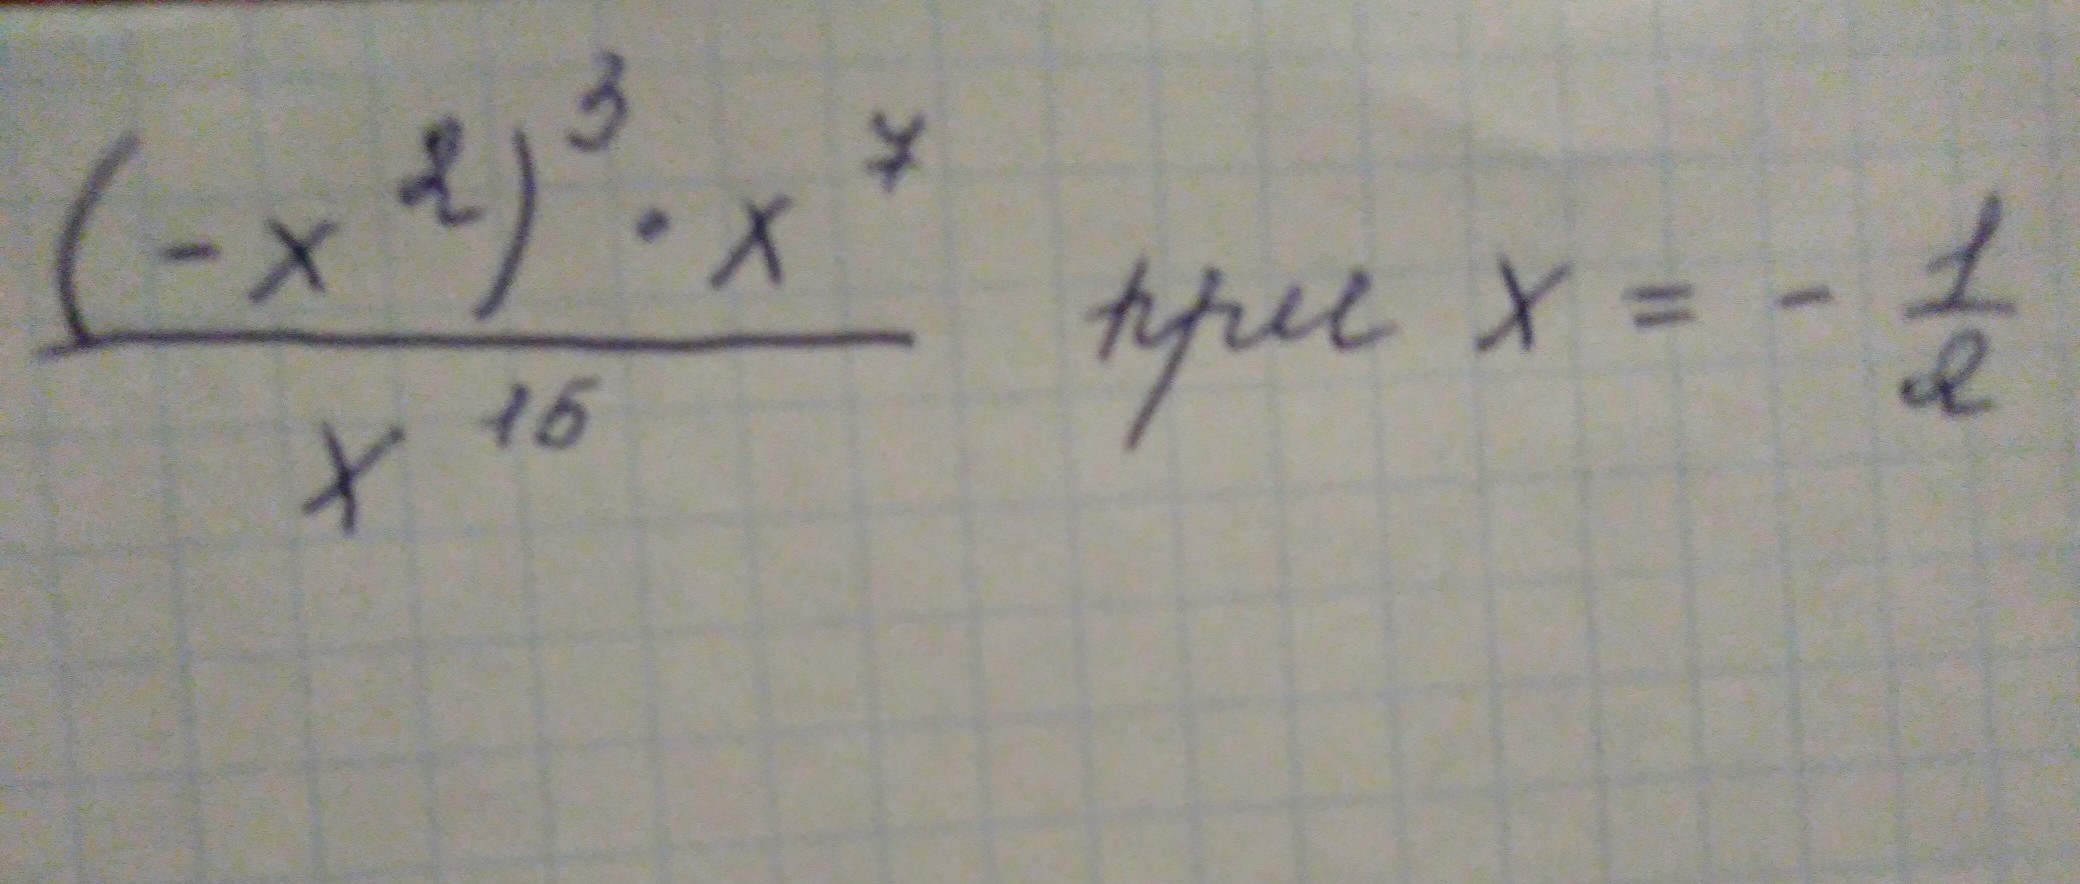 (-x²)³ · x⁷ / x¹⁵ при x = - 1/2